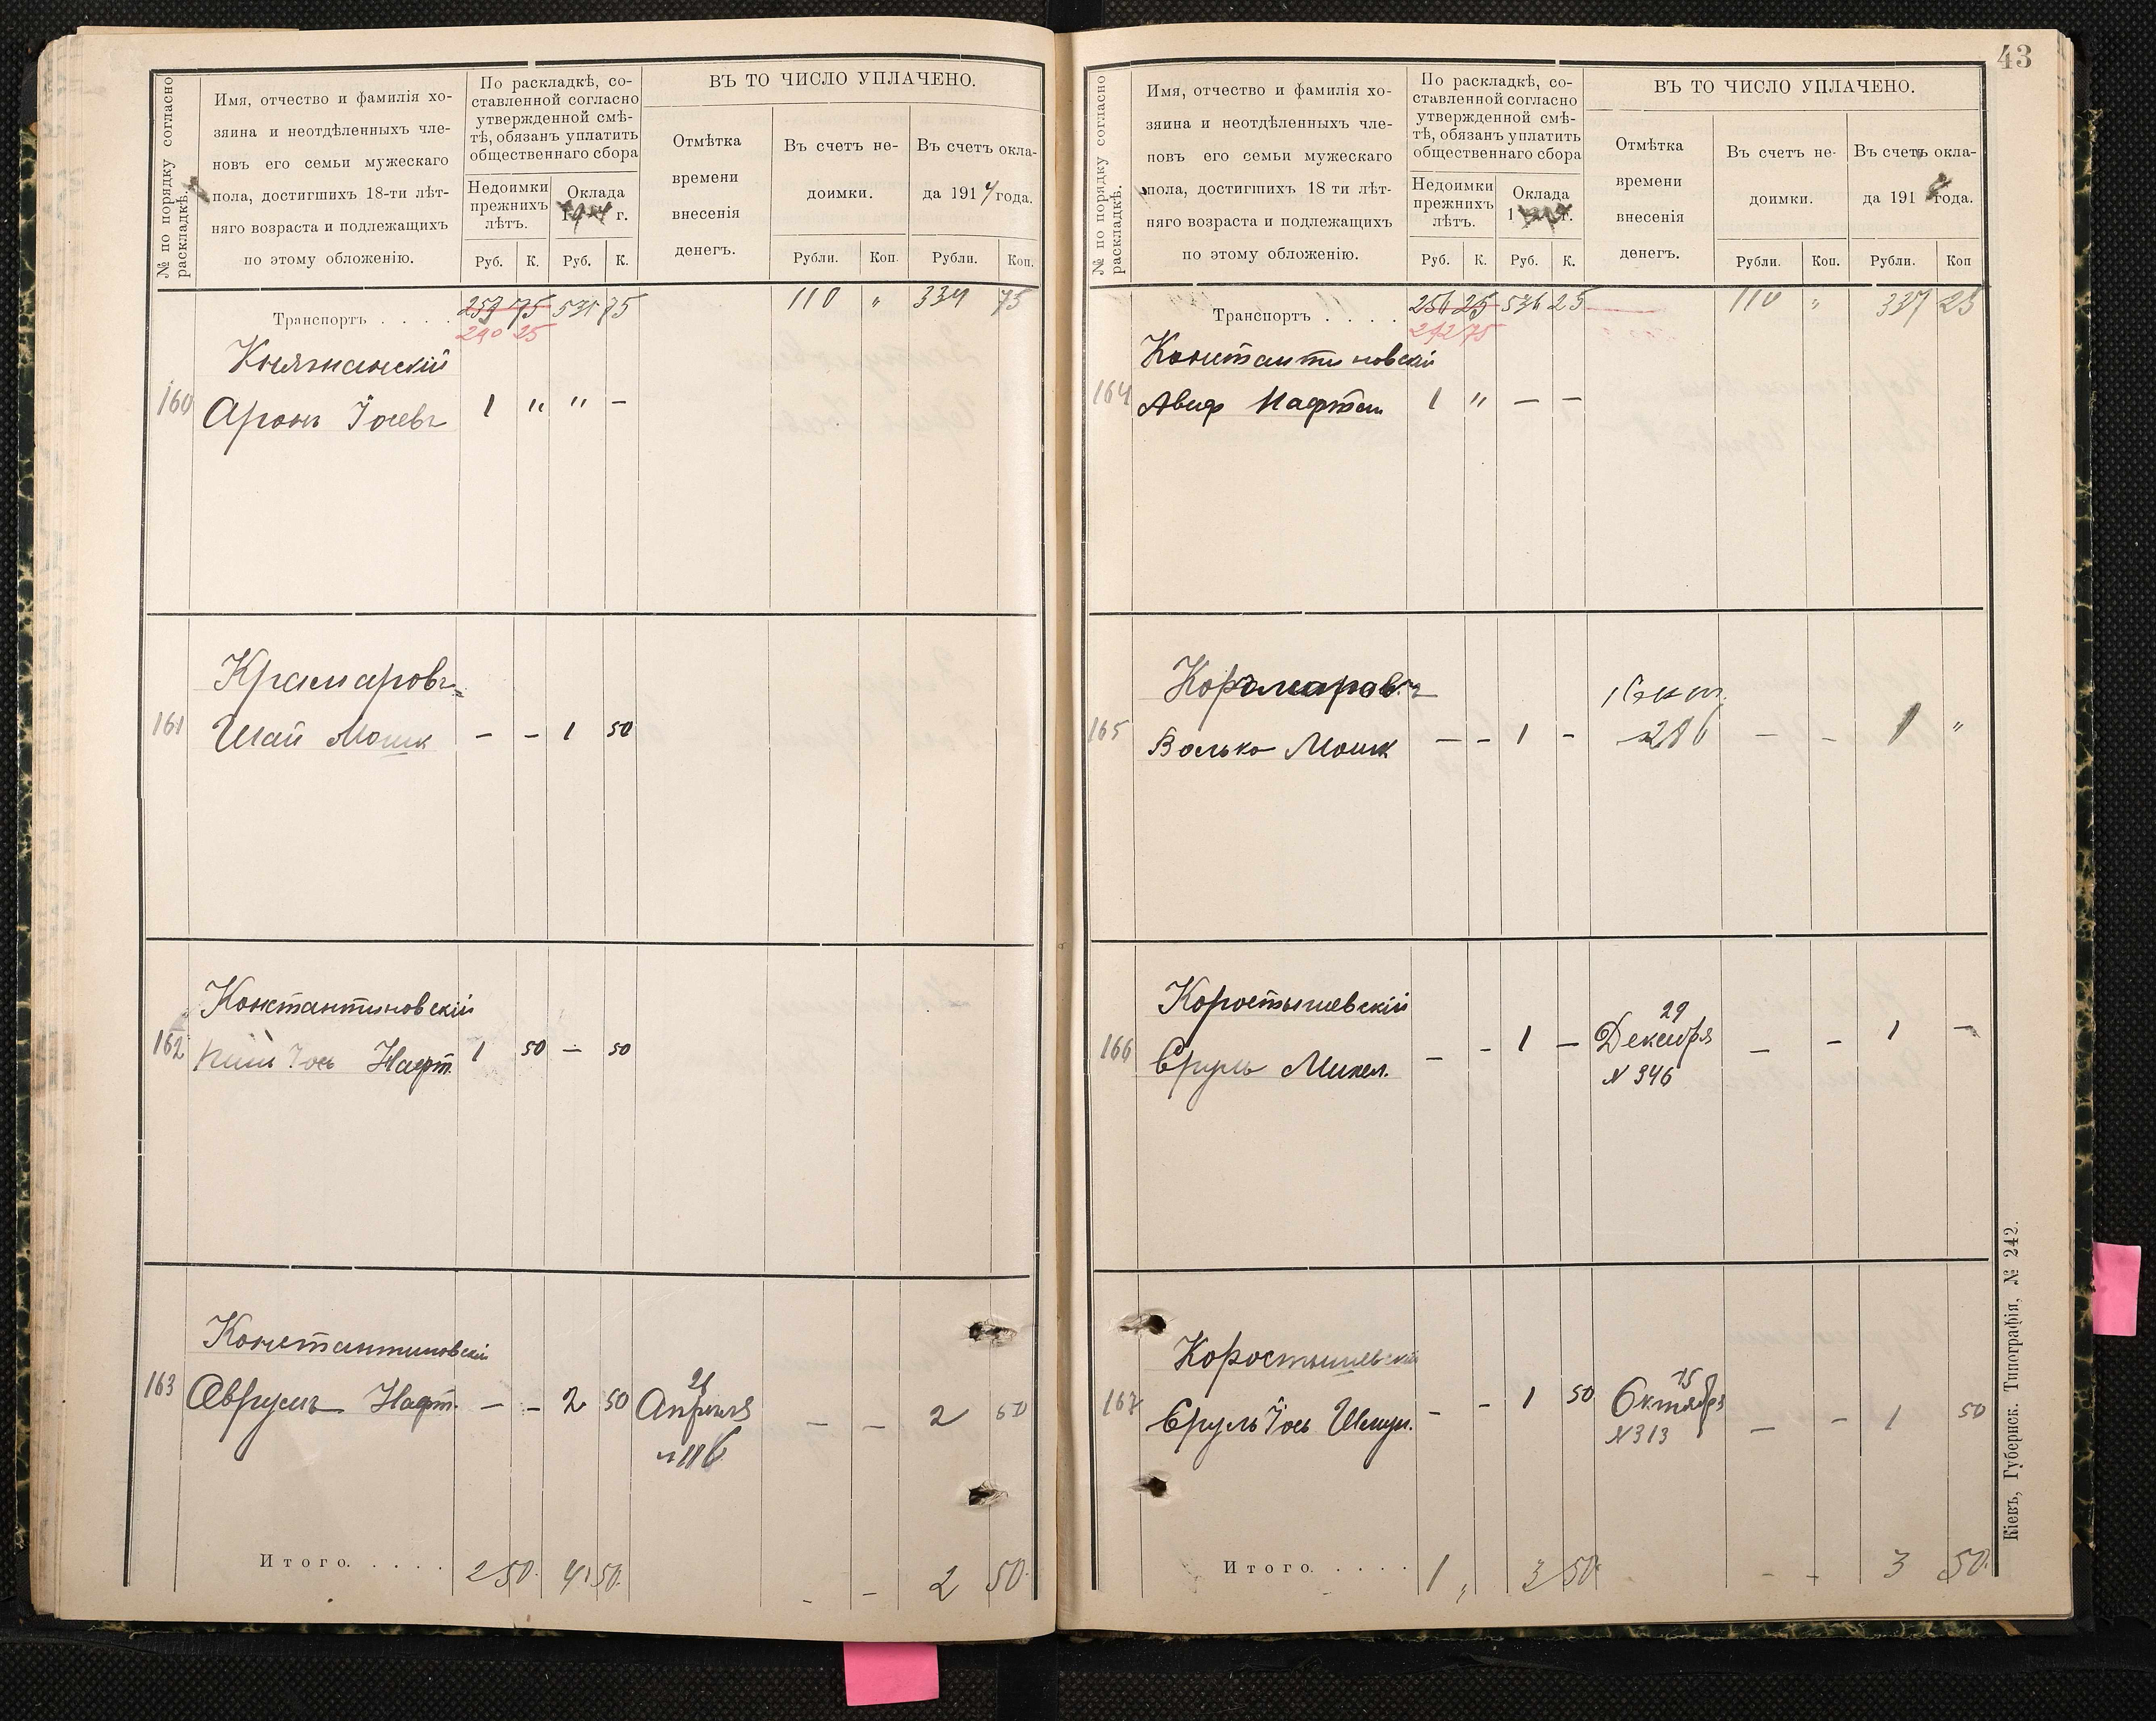 № по порядку согласно
раскладкѣ.
Имя, отчество и фамилія хо-
зяина и неотдѣленныхъ чле-
новъ его семьи мужескаго
пола, достигшихъ 18-ти лѣт-
няго возраста и подлежащихъ
по этому обложенію.
По раскладкѣ, со-
ставленной согласно
утвержденной смѣ-
тѣ, обязанъ уплатить
общественнаго сбора
Недоимки
прежнихъ
лѣтъ.
Оклада
г.
Руб. К. Руб. К.
ВЪ ТО ЧИСЛО УПЛАЧЕНО.
Отмѣтка
времени
внесенія
денегъ.
Въ счетъ не-
доимки.
Въ счетъ окла-
да 1914 года.
Рубли. Коп. Рубли. Коп.
Транспортъ . . . . 253 75 531 75 110 " 334 75
240 25
Княжанскій
160 Аронъ Іосевъ 1 " " –
Крамаровъ
161 Шай Мошк – – 1 50
Константиновскій
162 Іось Нафт. 1 50 – 50
Константиновскій
163 Аврумъ Нафт. – – 2 50 21 Апрѣля – – 2 50
№ 116
Итого. . . . . 2 50. 4 50. - – 2 50.
43
№ по порядку согласно
раскладкѣ.
Имя, отчество и фамилія хо-
зяина и неотдѣленныхъ чле-
новъ его семьи мужескаго
пола, достигшихъ 18 ти лѣт-
няго возраста и подлежащихъ
по этому обложенію.
По раскладкѣ, со-
ставленной согласно
утвержденной смѣ-
тѣ, обязанъ уплатить
общественнаго сбора
Недоимки
прежнихъ
лѣтъ.
Оклада
г.
Руб. К. Руб. К.
ВЪ ТО ЧИСЛО УПЛАЧЕНО.
Отмѣтка
времени
внесенія
денегъ.
Въ счетъ не-
доимки.
Въ счетъ окла-
да 191 года.
Рубли. Коп. Рубли. Коп
Транспортъ . . . . 256 25 536 25 110 " 337 25
242 75
Константиновскій
164 Нафтал 1 " – –
165 Волько Мошк – – 1 – 286 – – 1 "
Коростышевскій
166 Сруль Михел. – – 1 – 29 Декабря – – 1 –
№ 346
Коростышевскій
167 Сруль Іось Шмул. – – 1 50 15 Октября – – 1 50
№ 313
Итого. . . . . 1 " 3 50. - - 3 50.
Кіевъ, Губернск. Типографія, № 242.